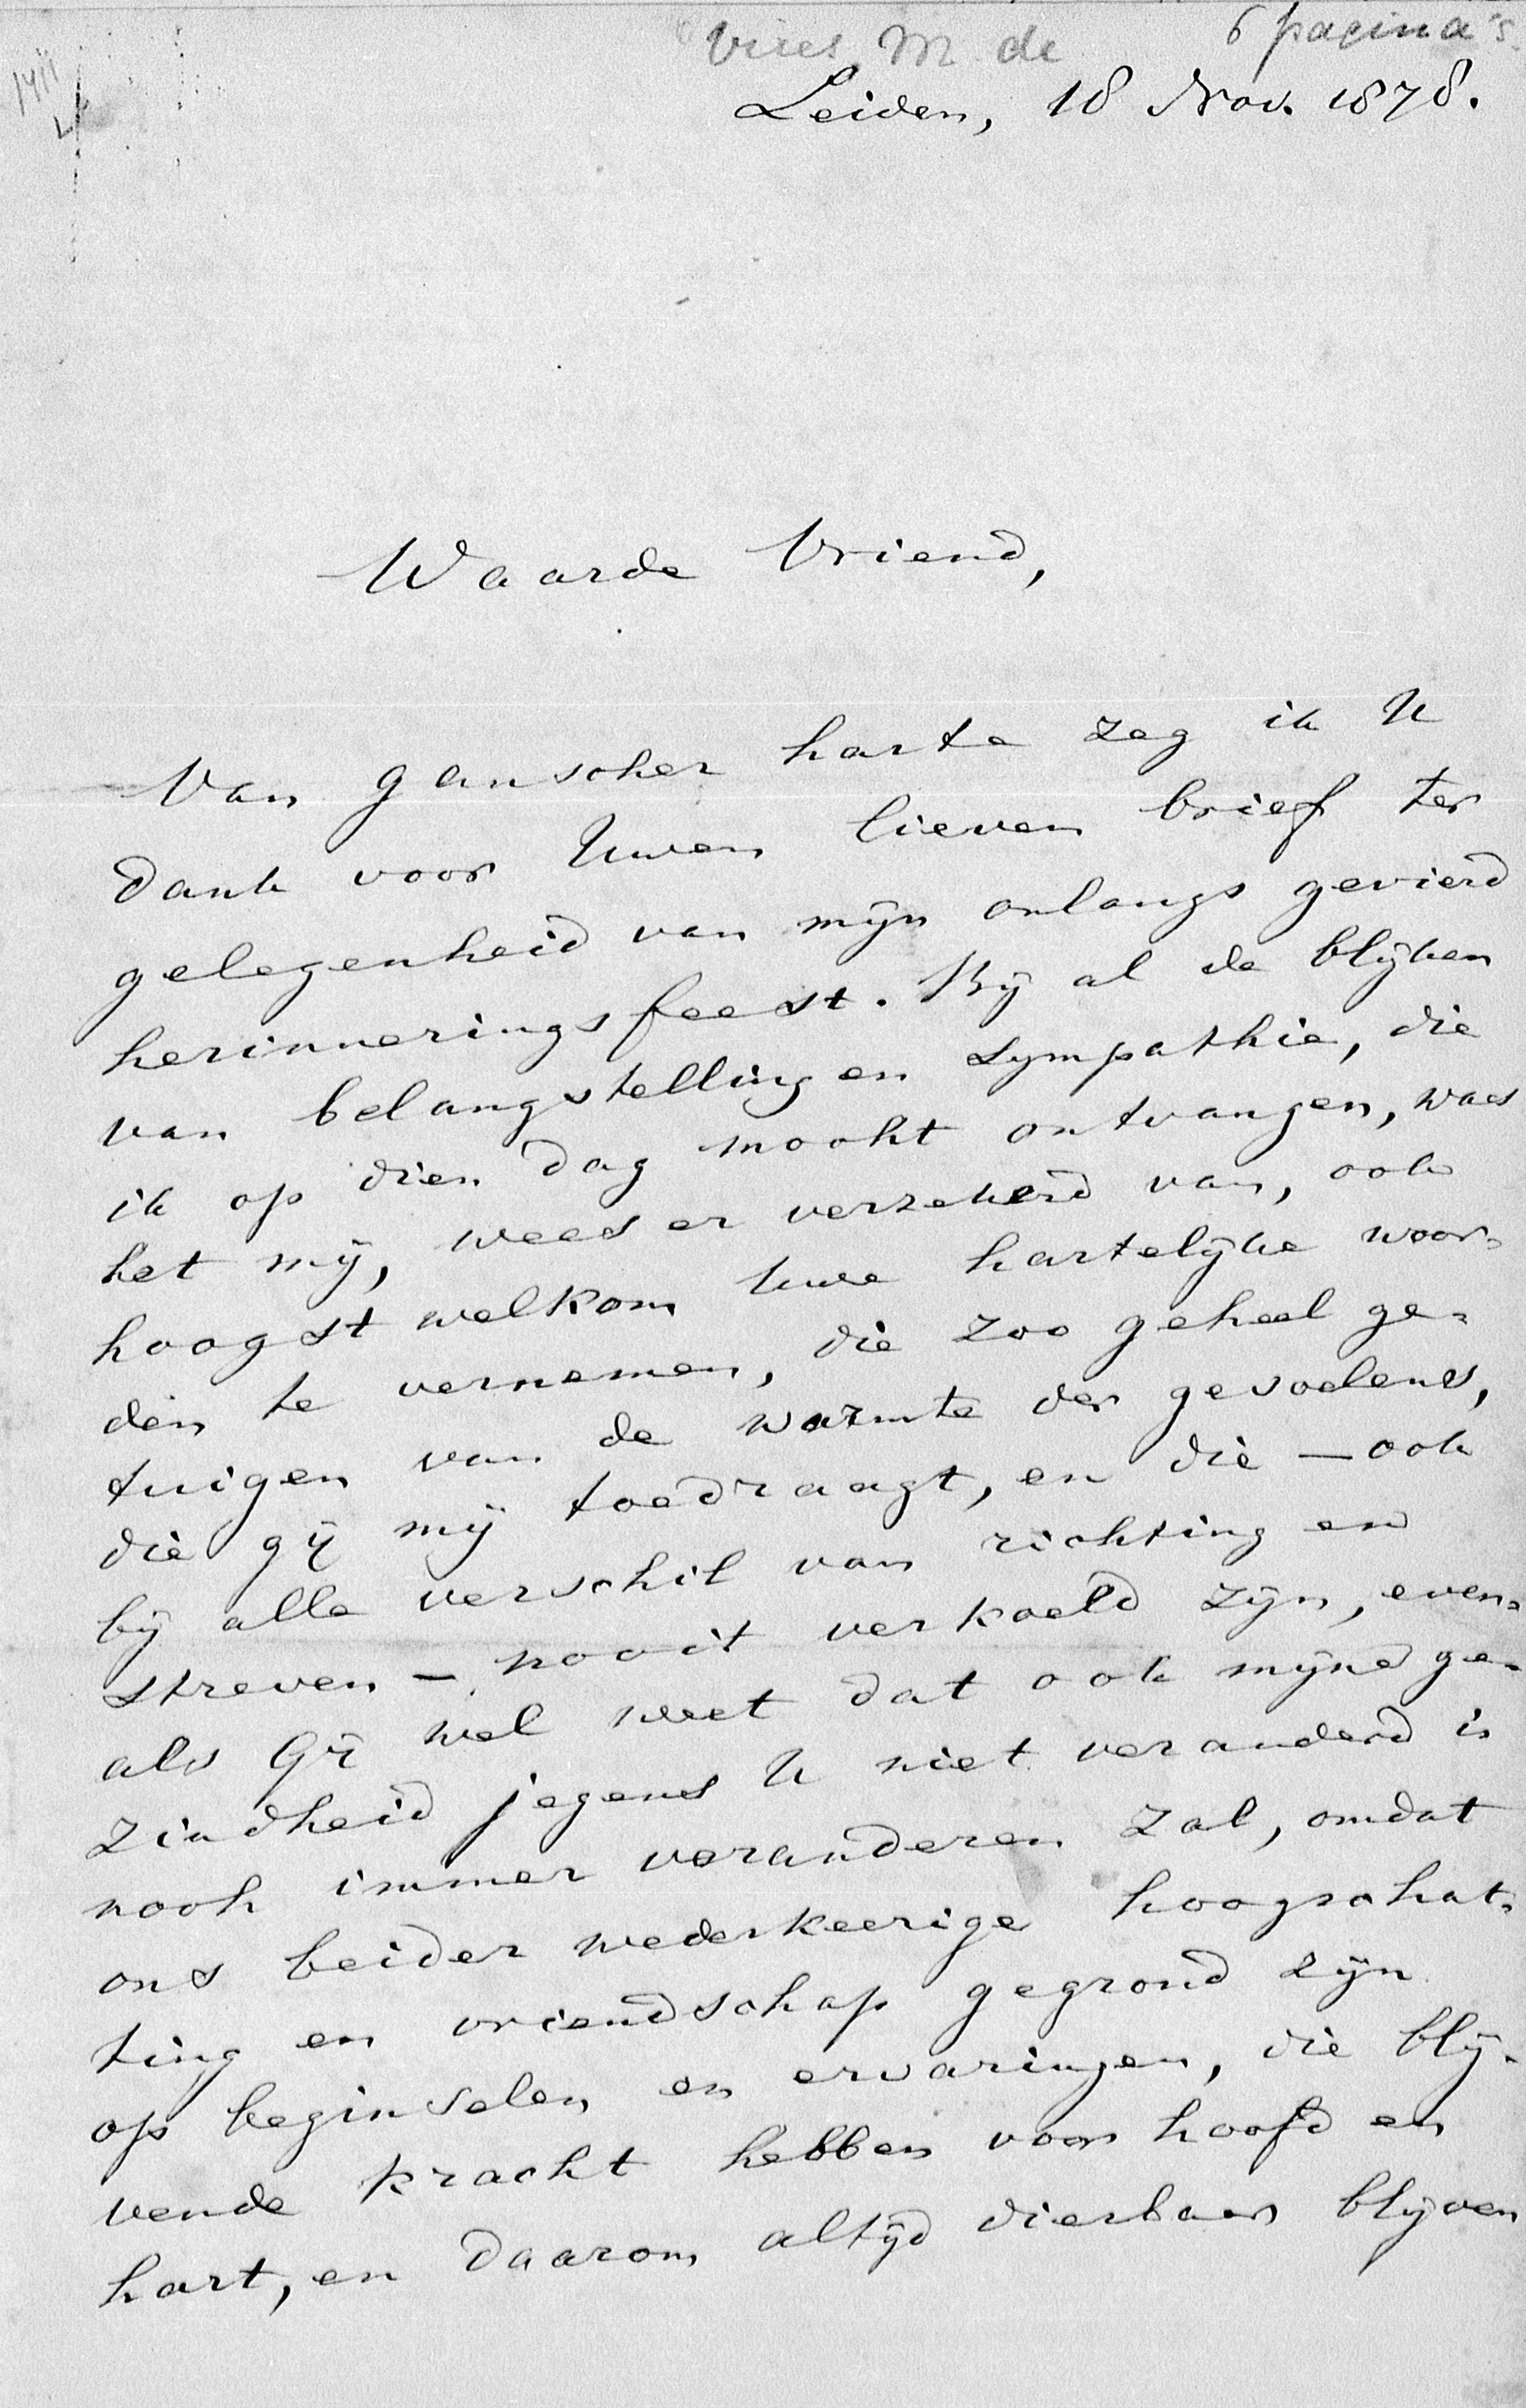 Vries, M. de 6 pagina's.
Leiden, 18 Nov. 1878.
Waarde Vriend,
Van ganscher harte zeg ik U
dank voor Uwen lieven brief ter
gelegenheid van mijn onlangs gevierd
herinneringsfeest. Bij al de blijken
van belangstelling en sympathie, die
ik op dien dag mocht ontvangen, was
het mij, wees er verzekerd van, ook
hoogst welkom Uwe hartelijke woor-
den te vernemen, die zoo geheel ge-
tuigen van de warmte der gevoelens,
die gij mij toedraagt, en die — ook
bij alle verschil van richting en
streven — nooit verkoeld zijn, even-
als Gij wel weet dat ook mijne ge-
zindheid jegens U niet veranderd is
noch immer veranderen zal, omdat
ons beider wederkeerige hoogschat-
ting en vriendschap gegrond zijn
op beginselen en ervaringen, die blij-
vende kracht hebben voor hoofd en
hart, en daarom altijd dierbaar blijven